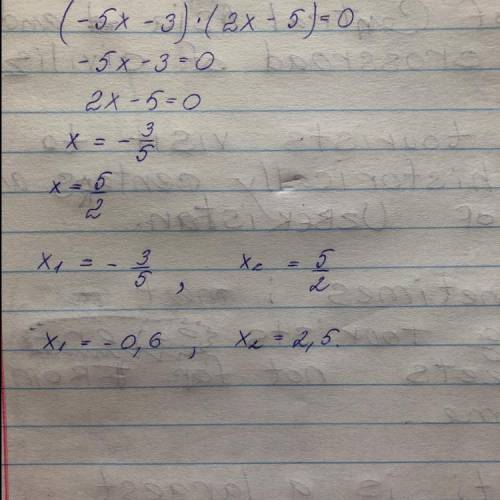 (-5x - 3) · (2x - 5) = 0
-5x - 3 = 0
2x - 5 = 0
x = - 3/5
x = 5/2
x₁ = - 3/5 , x₂ = 5/2
x₁ = -0,6 , x₂ = 2,5.